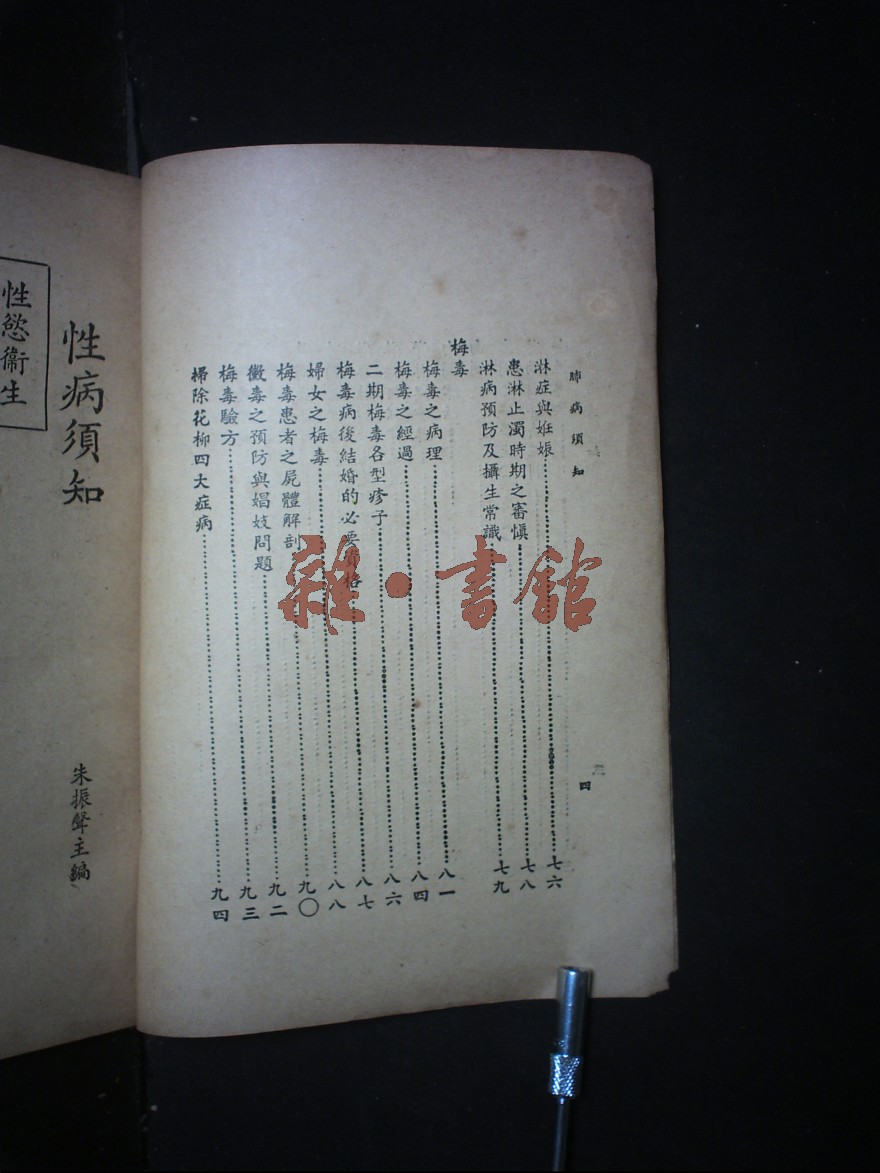 肺病須知 四
淋症與姙娠……七六
患淋止濁時期之審慎……七八
淋病預防及攝生常識……七九
梅毒
梅毒之病理……八一
梅毒之經過……八四
二期梅毒各型疹子……八六
梅毒病後結婚的必要資格……八七
婦女之梅毒……八八
梅毒患者之屍體解剖……九〇
黴毒之預防與娼妓問題……九二
梅毒驗方……九三
掃除花柳四大症病……九四
雜·書館
性病須知
朱振聲主編
性慾衞生